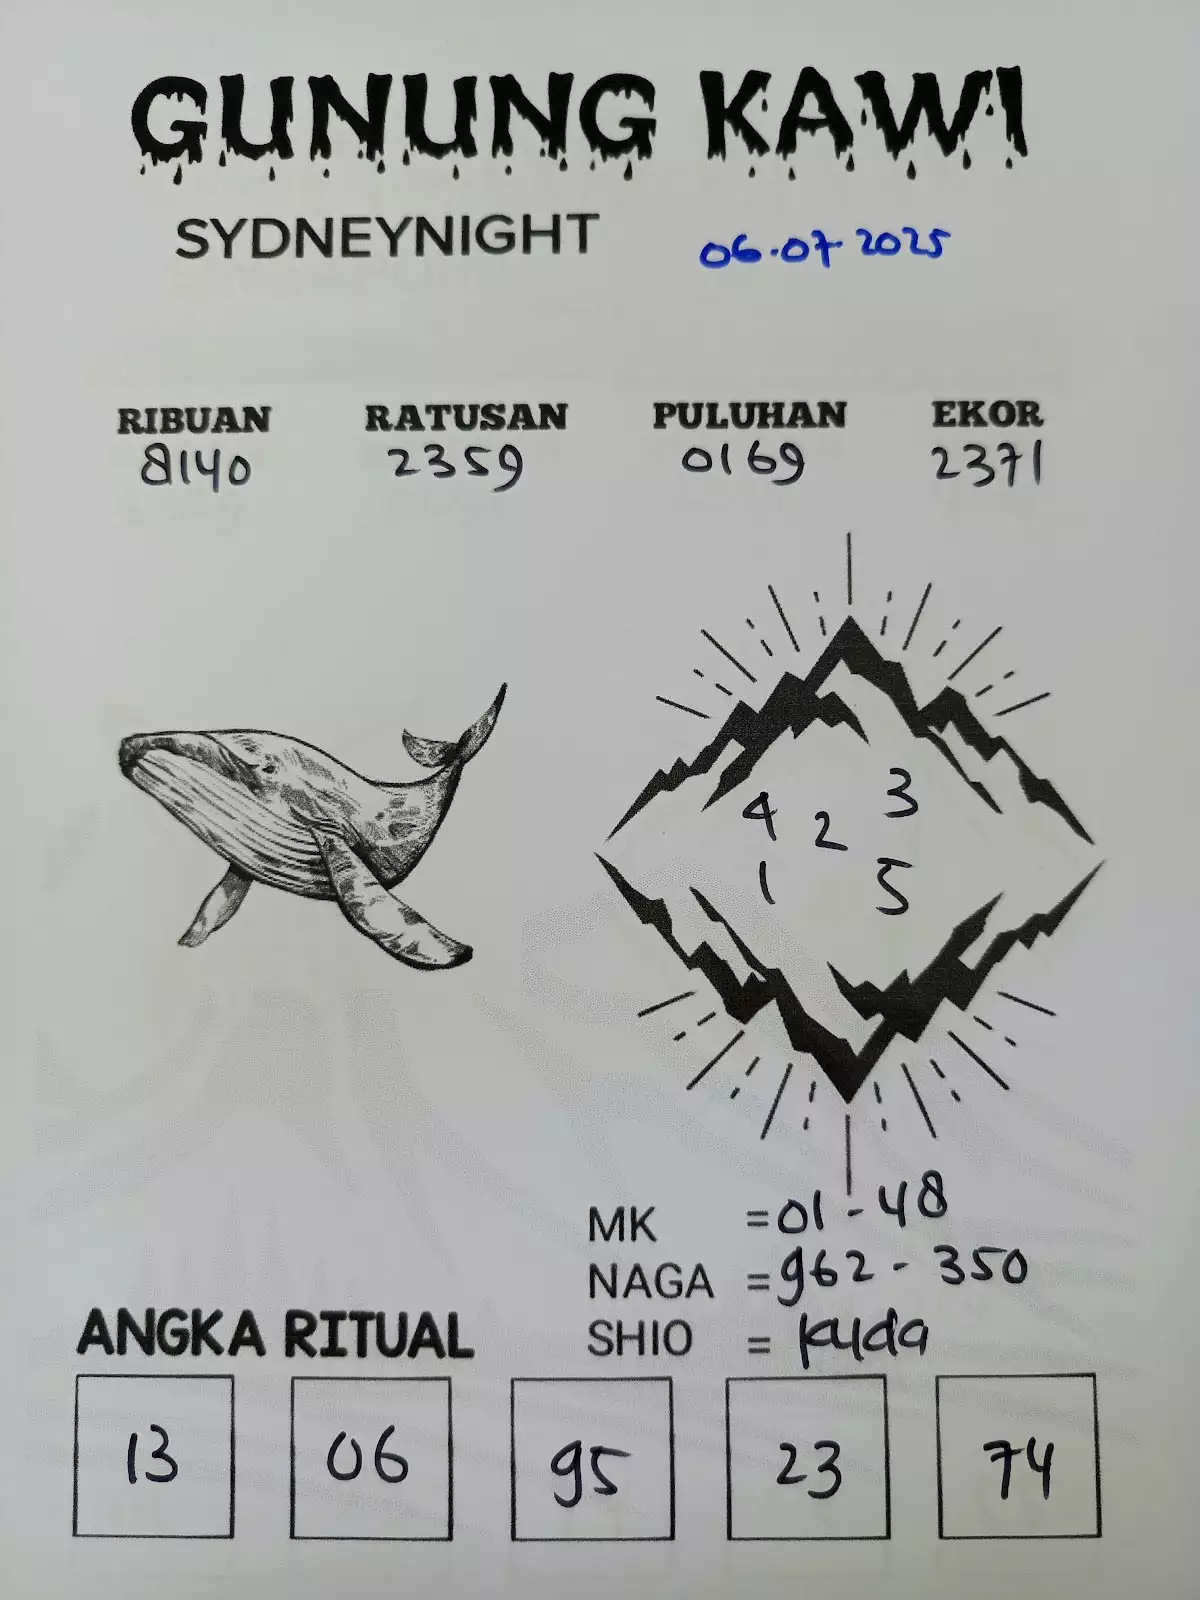 GUNUNG KAWI
SYDNEYNIGHT 06.07.2025
RIBUAN RATUSAN PULUHAN EKOR
8140 2359 0169 2371
4 2 3
1 5
MK =01-48
NAGA =962-350
SHIO = kuda
ANGKA RITUAL
13 06 95 23 74